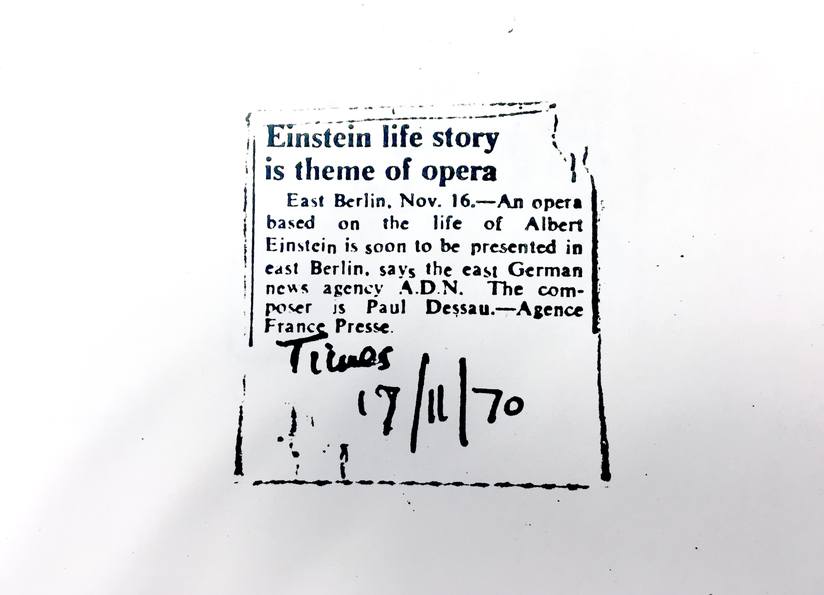 Einstein life story
is theme of opera
East Berlin, Nov. 16.—An opera
based on the life of Albert
Einstein is soon to be presented in
east Berlin, says the east German
news agency A.D.N. The com-
poser is Paul Dessau.—Agence
France Presse.
Times
17/11/70